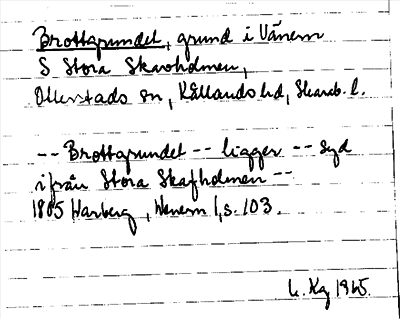 Brottgrundet, grund i Vänern
S Stora Skavholmen,
Otterstads sn, Kållands hd, Skarab. l.
-- Brottgrundet -- ligger -- Syd
ifrån Stora Skafholmen --
1805 Warberg, Wenern 1, s. 103.
1965